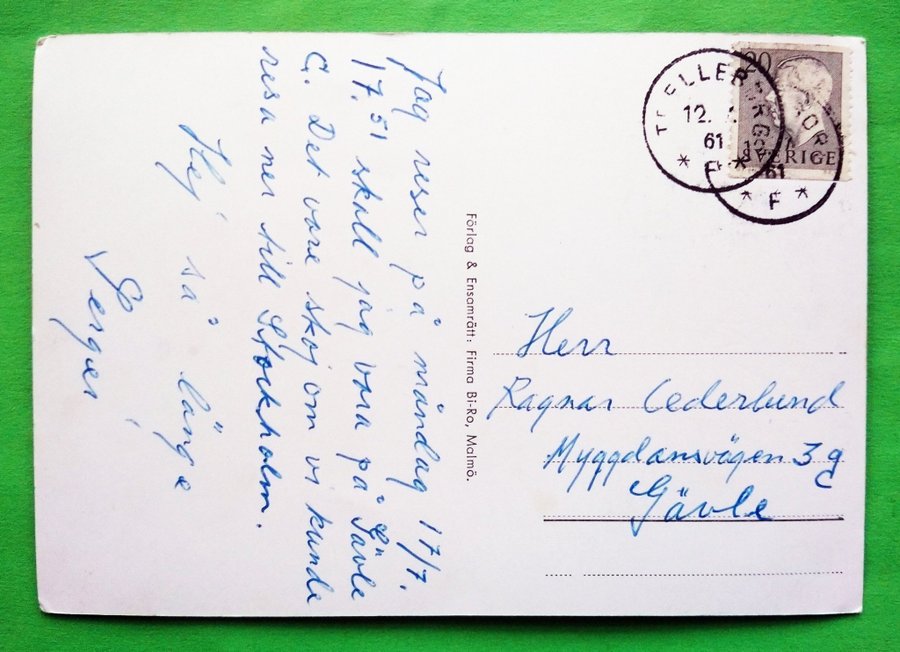 Jag reser på måndag 17/7.
17.51 skall jag vara på Gävle
C. Det vore skoj om vi kunde
resa ner till Stockholm.
Hej så länge
Förlag & Ensamrätt: Firma Bi-Ro, Malmö.
20
SVERIGE
TRELLEBORG
12.
61
F
61
F
Herr
Ragnar Cederlund
Myggdansvägen 3 g
Gävle